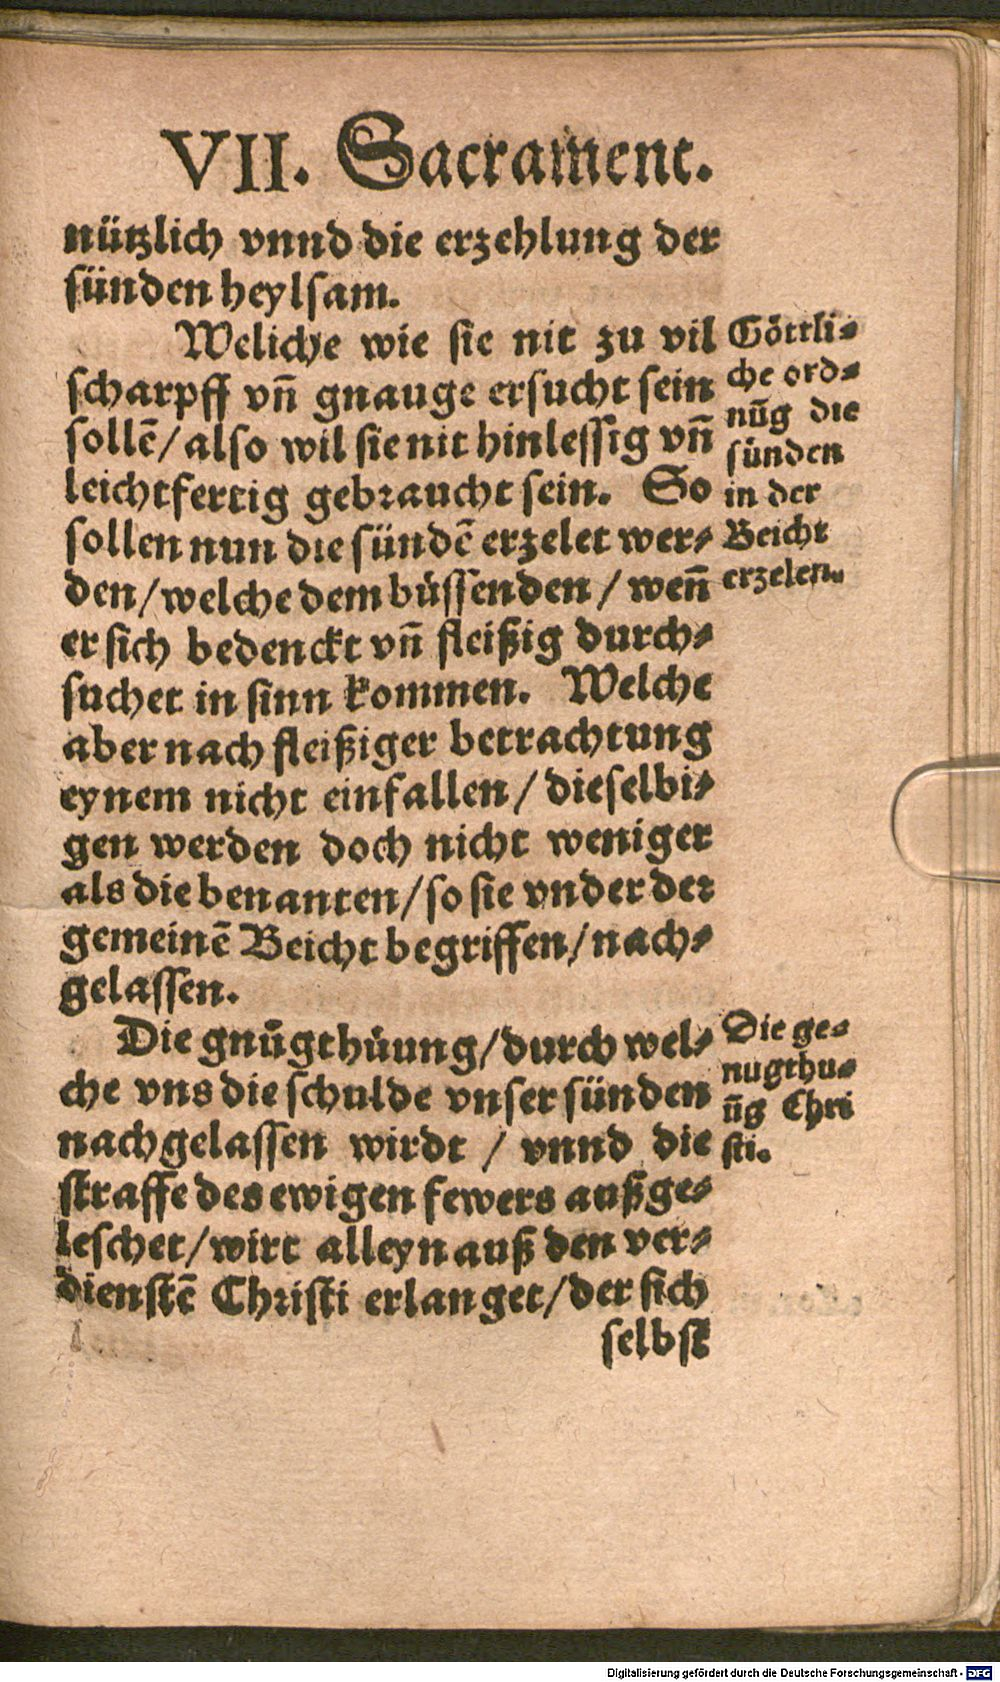 VII. Sacrament.
nützlich vnnd die erzehlung der
sünden heylsam.
Weliche wie sie nit zu vil
scharpff vñ gnauge ersucht sein
sollē/also wil sie nit hinlessig vñ
leichtfertig gebraucht sein. So
sollen nun die sündē erzelet wer⸗
den/welche dem büssenden/ weñ
er sich bedenckt vñ fleißig durch⸗
suchet in sinn kommen. Welche
aber nach fleißiger betrachtung
eynem nicht einfallen/ dieselbi⸗
gen werden doch nicht weniger
als die benanten/so sie vnder der
gemeinē Beicht begriffen/nach⸗
gelassen.
Die gnůgthůung/durch wel⸗
che vns die schulde vnser sünden
nachgelassen wirdt / vnnd die
straffe des ewigen fewers außge⸗
leschet/wirt alleyn auß den ver⸗
dienstē Christi erlanget/der sich
selbst
Göttli⸗
che ord⸗
nūg die
sünden
in der
Beicht
erzelen.
Die ge⸗
nugthu⸗
ūg Chri
sti.
Digitalisierung gefördert durch die Deutsche Forschungsgemeinschaft - DFG